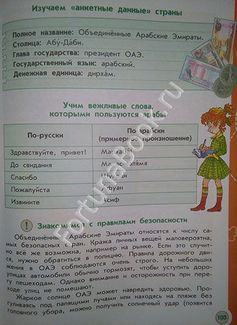 Изучаем «анкетные данные» страны
Полное название: Объединённые Арабские Эмираты.
Столица: Абу-Даби.
Глава государства: президент ОАЭ.
Государственный язык: арабский.
Денежная единица: дирхам.
Учим вежливые слова,
которыми пользуются арабы
По-русски
По-арабски
(примерное произношение)
Здравствуйте, привет!
До свидания
Спасибо
Пожалуйста
Извините
Асиф
! Знакомимся с правилами безопасности
Объединённые Арабские Эмираты относятся к числу са-
мых безопасных стран. Кража личных вещей маловероятна,
но всё же возможна, например на рынке. Если это случит-
ся, нужно обратиться в полицию. Правила дорожного дви-
жения в ОАЭ соблюдаются очень строго. На небольших
улицах автомобили обычно тормозят, чтобы уступить доро-
гу пешеходам. Однако внимание и осторожность при пере-
Жаркое солнце ОАЭ может навредить здоровью. Про-
гуливаясь под палящими лучами или находясь на пляже без
головного убора, можно получить солнечный удар (появятся
103
FortunaBook.ru